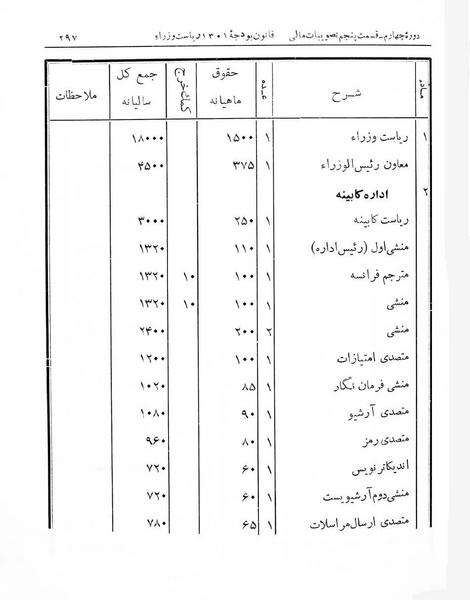 دورهٔ چهارم - قسمت پنجم تصویبات مالی قانون بودجهٔ ۱۳۰۱ ریاست وزراء ۲۹۷
ماده شرح عده حقوق ماهیانه کمک خرج جمع کل سالیانه ملاحظات
۱ ریاست وزراء ۱ ۱۵۰۰ ۱۸۰۰۰
معاون رئیس‌الوزراء ۱ ۳۷۵ ۴۵۰۰
۲ اداره کابینه
ریاست کابینه ۱ ۲۵۰ ۳۰۰۰
منشی اول (رئیس اداره) ۱ ۱۱۰ ۱۳۲۰
مترجم فرانسه ۱ ۱۰۰ ۱۰ ۱۳۲۰
منشی ۱ ۱۰۰ ۱۰ ۱۳۲۰
منشی ۲ ۲۰۰ ۲۴۰۰
متصدی امتیازات ۱ ۱۰۰ ۱۲۰۰
منشی فرمان نگار ۱ ۸۵ ۱۰۲۰
متصدی آرشیو ۱ ۹۰ ۱۰۸۰
متصدی رمز ۱ ۸۰ ۹۶۰
اندیکاتر نویس ۱ ۶۰ ۷۲۰
منشی دوم آرشیویست ۱ ۶۰ ۷۲۰
متصدی ارسال مراسلات ۱ ۶۵ ۷۸۰